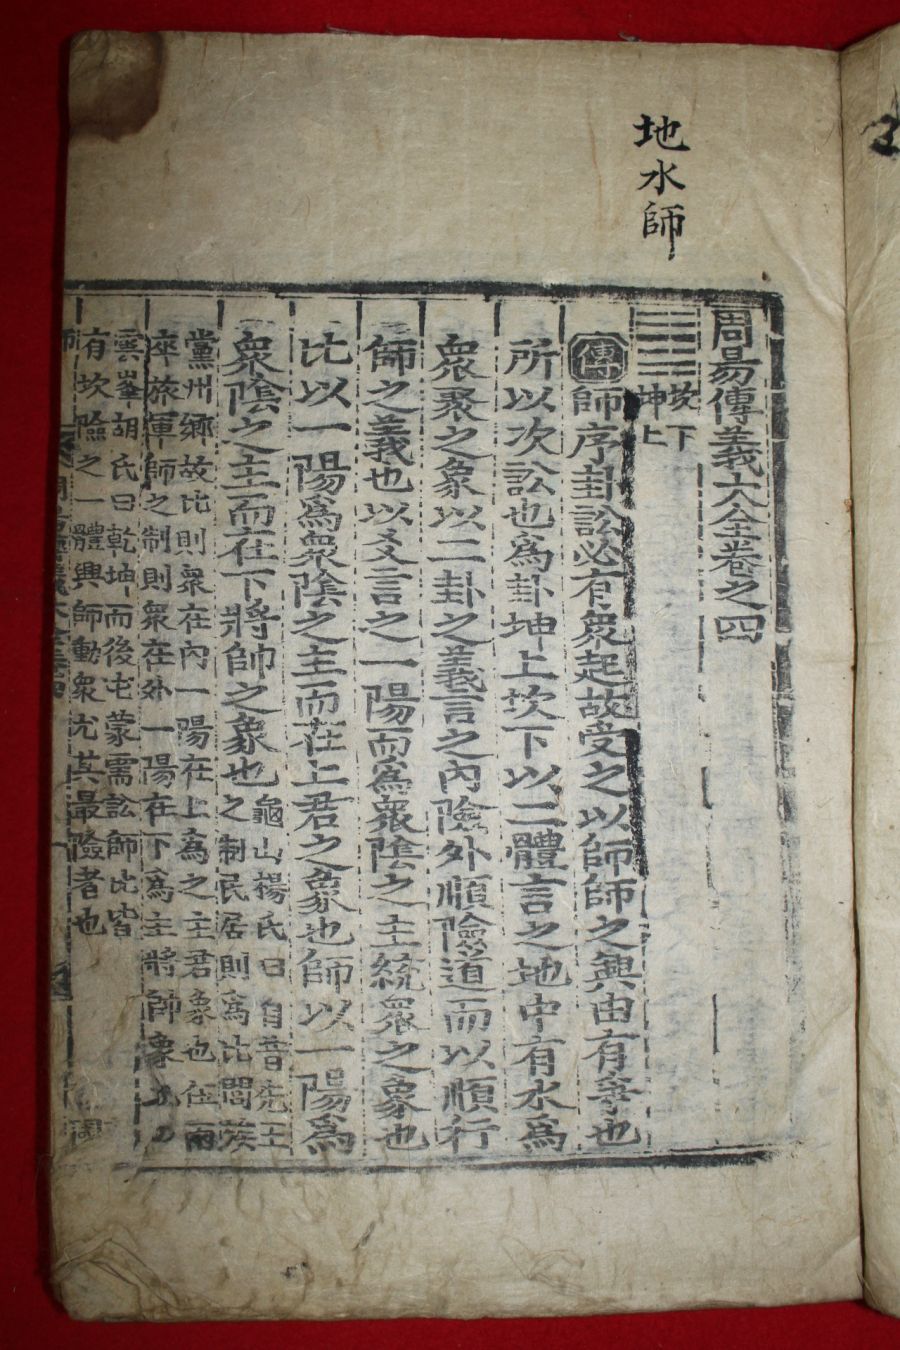 地水師
周易傳義大全卷之四
坎下
坤上
傳師序卦訟必有衆起故受之以師師之興由有爭也
所以次訟也爲卦坤上坎下以二體言之地中有水爲
衆聚之象以二卦之義言之內險外順險道而以順行
師之義也以爻言之一陽而爲衆陰之主統衆之象也
比以一陽爲衆陰之主而在上君之象也師以一陽爲
衆陰之主而在下將帥之象也
龜山楊氏曰自昔先王
之制民居則爲比閭族
黨州鄉故比則衆在內一陽在上爲之主君象也在
卒旅軍師之制則衆在外一陽在下爲主將帥象也
雲峯胡氏曰乾坤而後屯蒙需訟師比皆
有坎險之一體興師動衆尤其最險者也